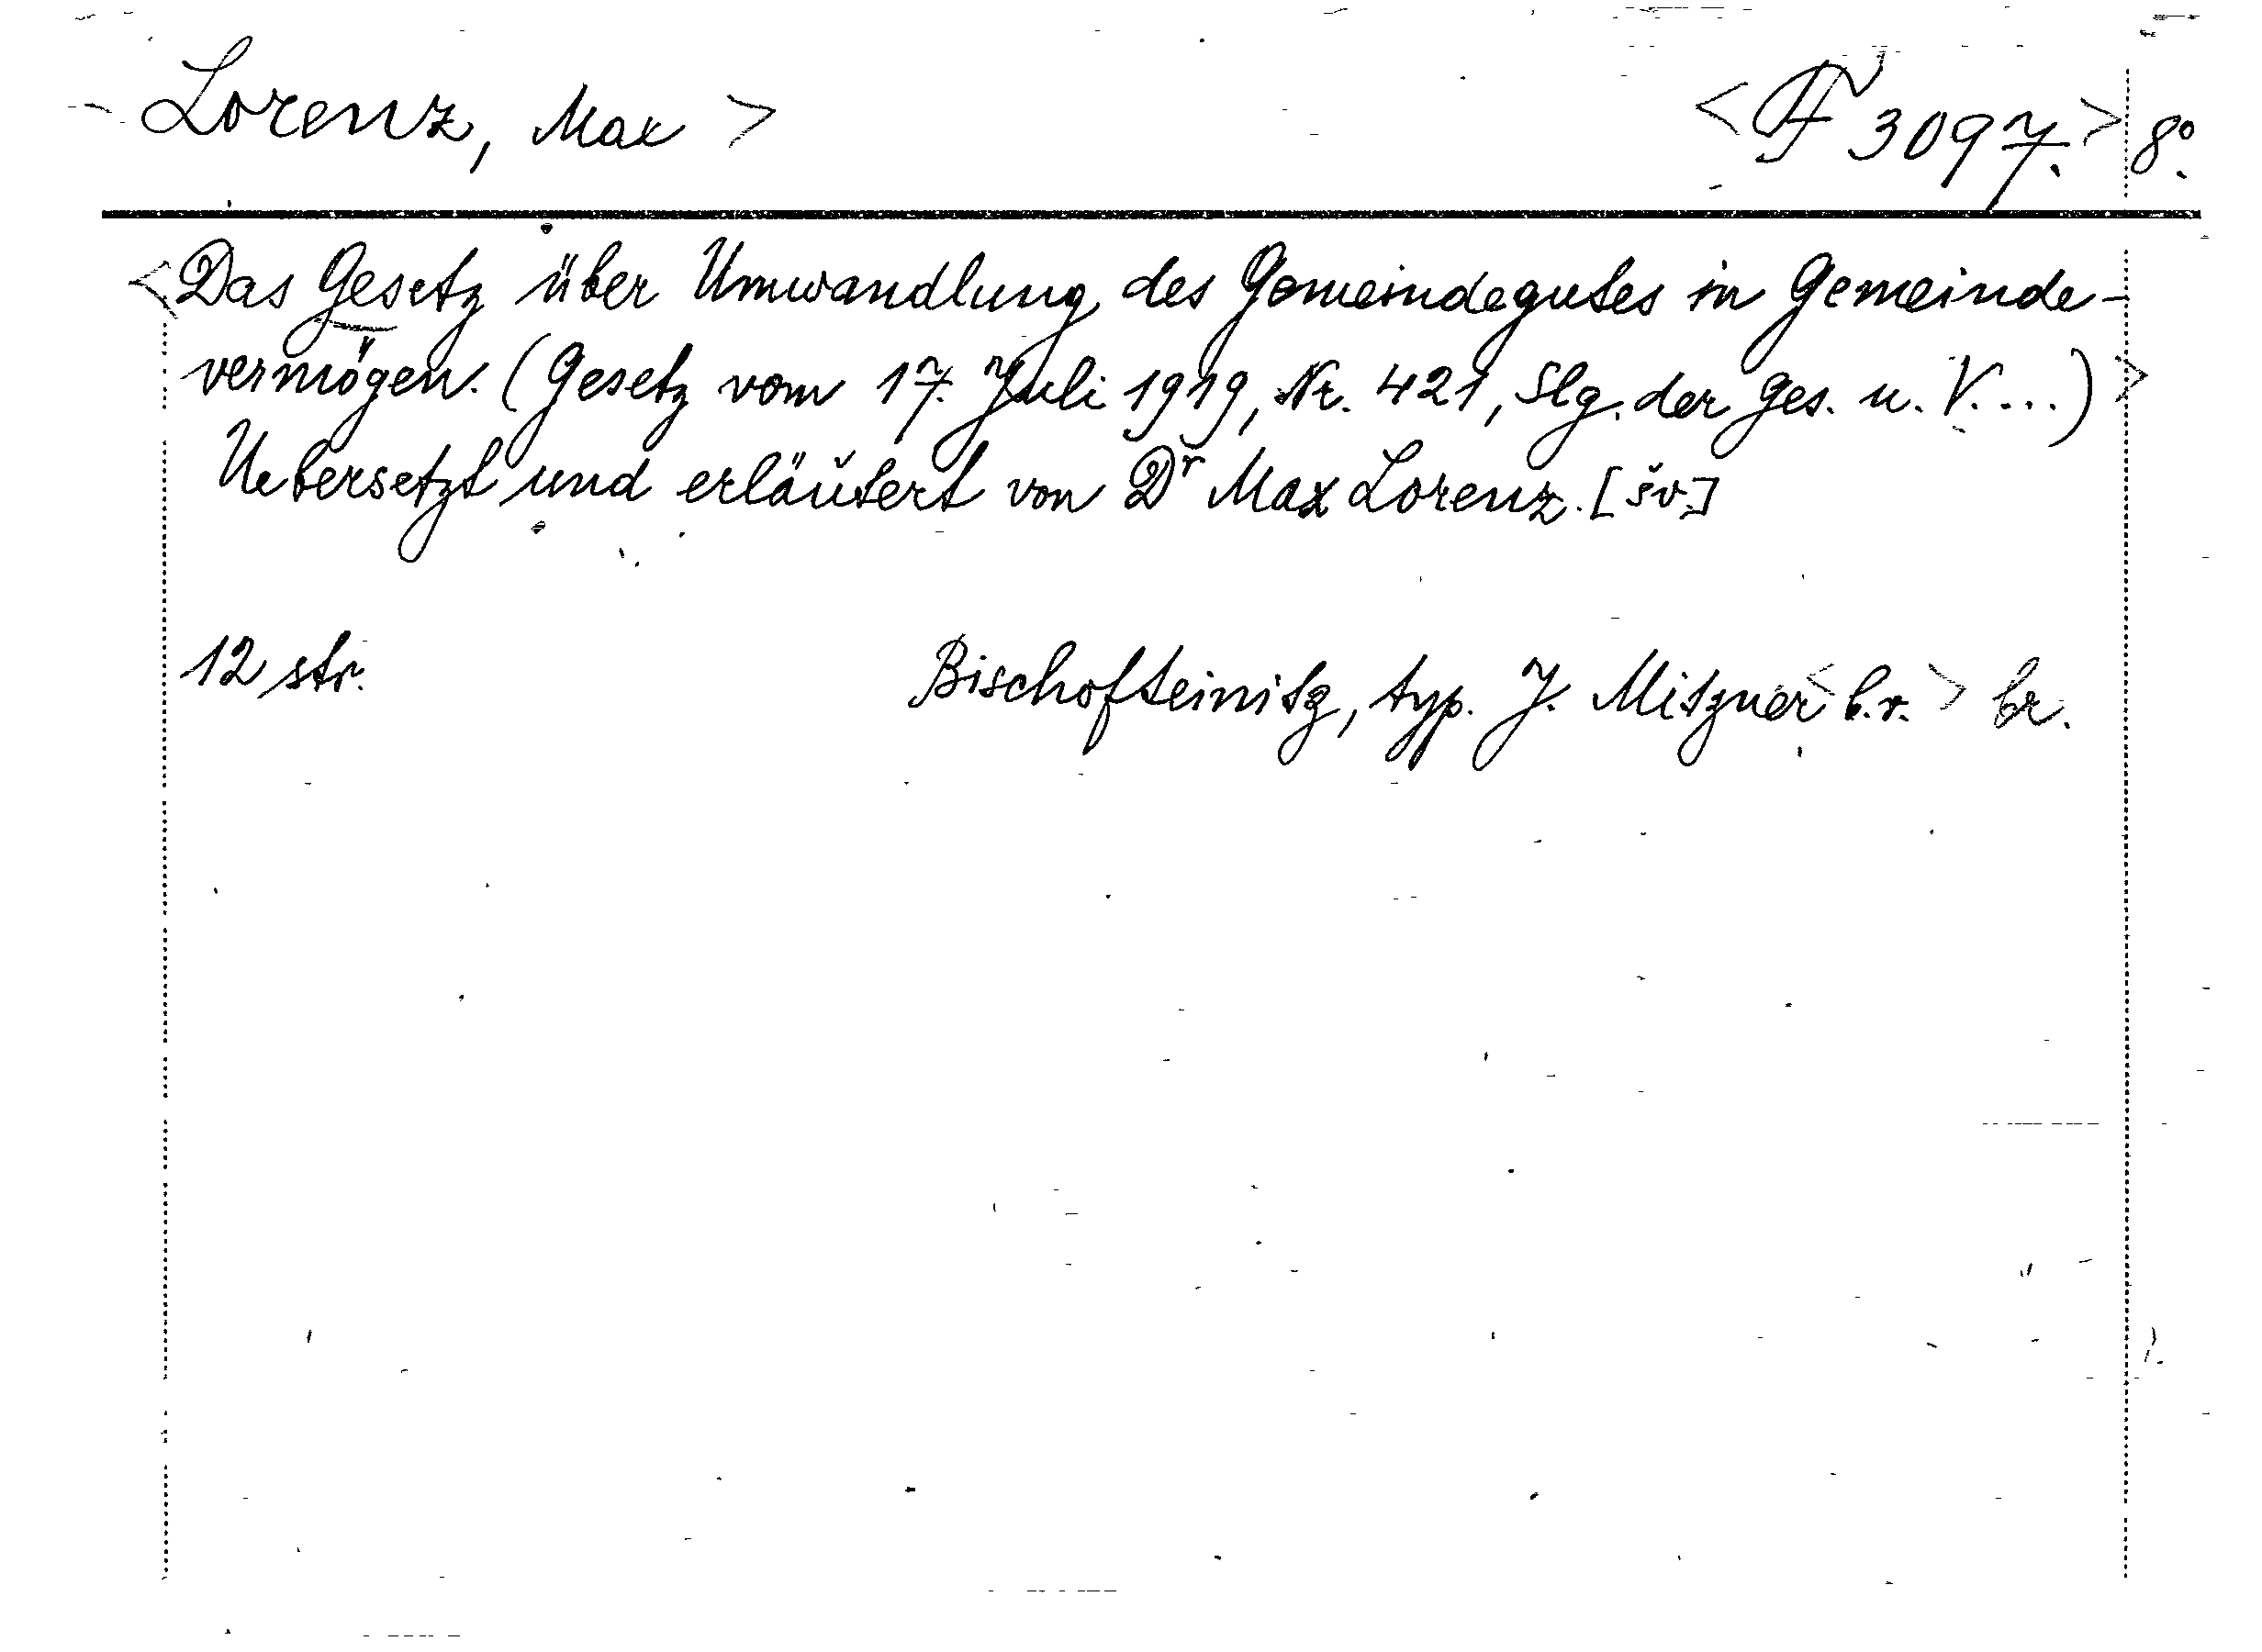 Lorenz, Max > <F 3097.> 8°.
<Das Gesetz über Umwandlung des Gemeindegutes in Gemeinde-
vermögen. (Gesetz vom 17. Juli 1919, Nr. 421, Slg. der Ges. u. V....)>
Uebersetzt und erläutert von Dr Max Lorenz. [šv.]
12 str. Bischofteinitz, typ. J. Mitzner <b.r.> br.